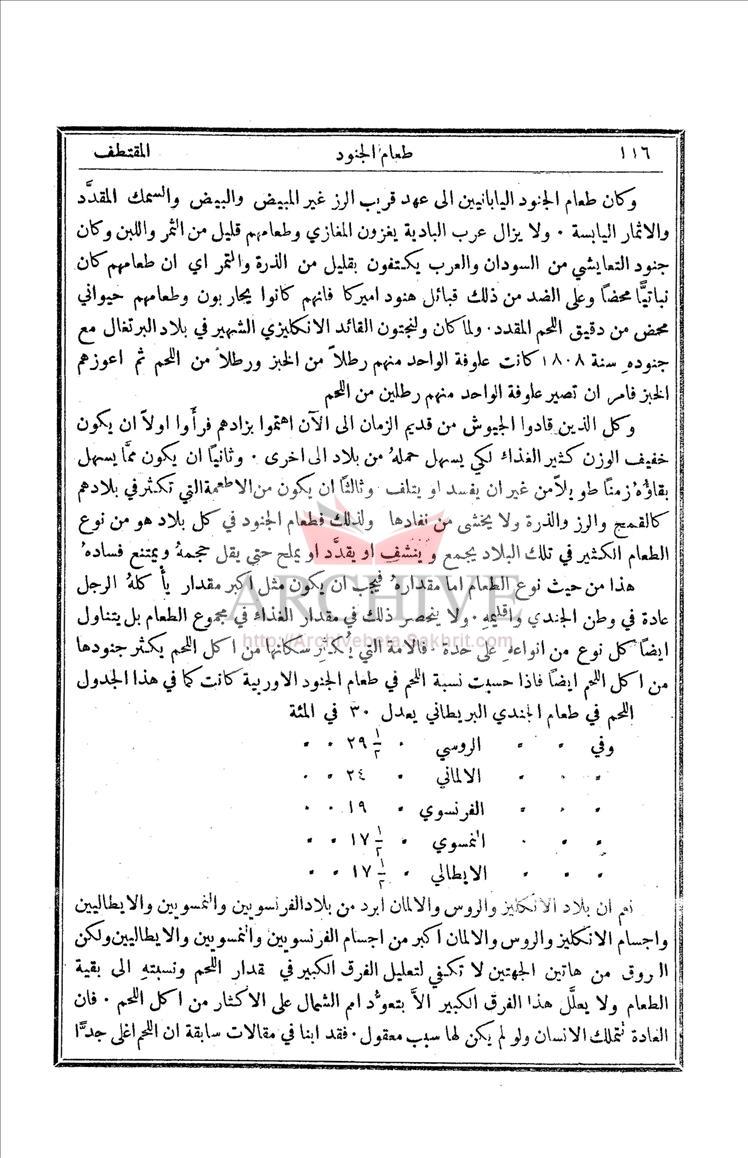 ١١٦ طعام الجنود المقتطف
وكان طعام الجنود اليابانيين الى عهد قريب الرز غير المبيض والبيض والسمك المقدَّد
والاثمار اليابسة ٠ ولا يزال عرب البادية يغزون المغازي وطعامهم قليل من التمر واللبن وكان
جنود التعايشي من السودان والعرب يكتفون بقليل من الذرة والتمر اي ان طعامهم كان
نباتيًّا محضًا وعلى الضد من ذلك قبائل هنود اميركا فانهم كانوا يحاربون وطعامهم حيواني
محض من دقيق اللحم المقدد٠ ولما كان ولنجتون القائد الانكليزي الشهير في بلاد البرتغال مع
جنوده سنة ١٨٠٨ كانت علوفة الواحد منهم رطلاً من الخبز ورطلاً من اللحم ثم اعوزهم
الخبز فامر ان تصير علوفة الواحد منهم رطلين من اللحم
وكل الذين قادوا الجيوش من قديم الزمان الى الآن اهتموا بزادهم فرأَوا اولاً ان يكون
خفيف الوزن كثير الغذاء لكي يسهل حمله من بلاد الى اخرى ٠ وثانيًا ان يكون ممَّا يسهل
بقاؤُه زمنًا طويلاً من غير ان يفسد او يتلف وثالثًا ان يكون من الاطعمة التي تكثر في بلادهم
كالقمح والرز والذرة ولا يخشى من نفادها ولذلك فطعام الجنود في كل بلاد هو من نوع
الطعام الكثير في تلك البلاد يجمع ويُنشَّف او يقدَّد او يملح حتى يقل حجمهُ ويمتنع فسادهُ
هذا من حيث نوع الطعام اما مقدارهُ فيجب ان يكون مثل اكبر مقدار يأكلهُ الرجل
عادة في وطن الجندي واقليمه ٠ ولا ينحصر ذلك في مقدار الغذاء في مجموع الطعام بل يتناول
ايضًا كل نوع من انواعه على حدة ٠ فالامة التي يُكثر سكانها من اكل اللحم يكثر جنودها
من اكل اللحم ايضًا فاذا حسبت نسبة اللحم في طعام الجنود الاوربية كانت كما في هذا الجدول
اللحم في طعام الجندي البريطاني يعدل ٣٠ في المئة
وفي " " الروسي " ٢٩ ١/٢ " "
" " " الالماني " ٢٤ " "
" " " الفرنسوي " ١٩ " "
" " " النمسوي " ١٧ ١/٢ " "
" " " الايطالي " ١٧ ١/٢ " "
نعم ان بلاد الانكليز والروس والالمان ابرد من بلاد الفرنسويين والنمسويين والايطاليين
واجسام الانكليز والروس والالمان اكبر من اجسام الفرنسويين والنمسويين والايطاليين ولكن
الفروق من هاتين الجهتين لا تكفي لتعليل الفرق الكبير في مقدار اللحم ونسبته الى بقية
الطعام ولا يعلَّل هذا الفرق الكبير الاَّ بتعوُّد امم الشمال على الاكثار من اكل اللحم ٠ فان
العادة تتملك الانسان ولو لم يكن لها سبب معقول ٠ فقد ابنا في مقالات سابقة ان اللحم اغلى جدًّا
ARCHIVE
http://Archivebeta.Sakhrit.com